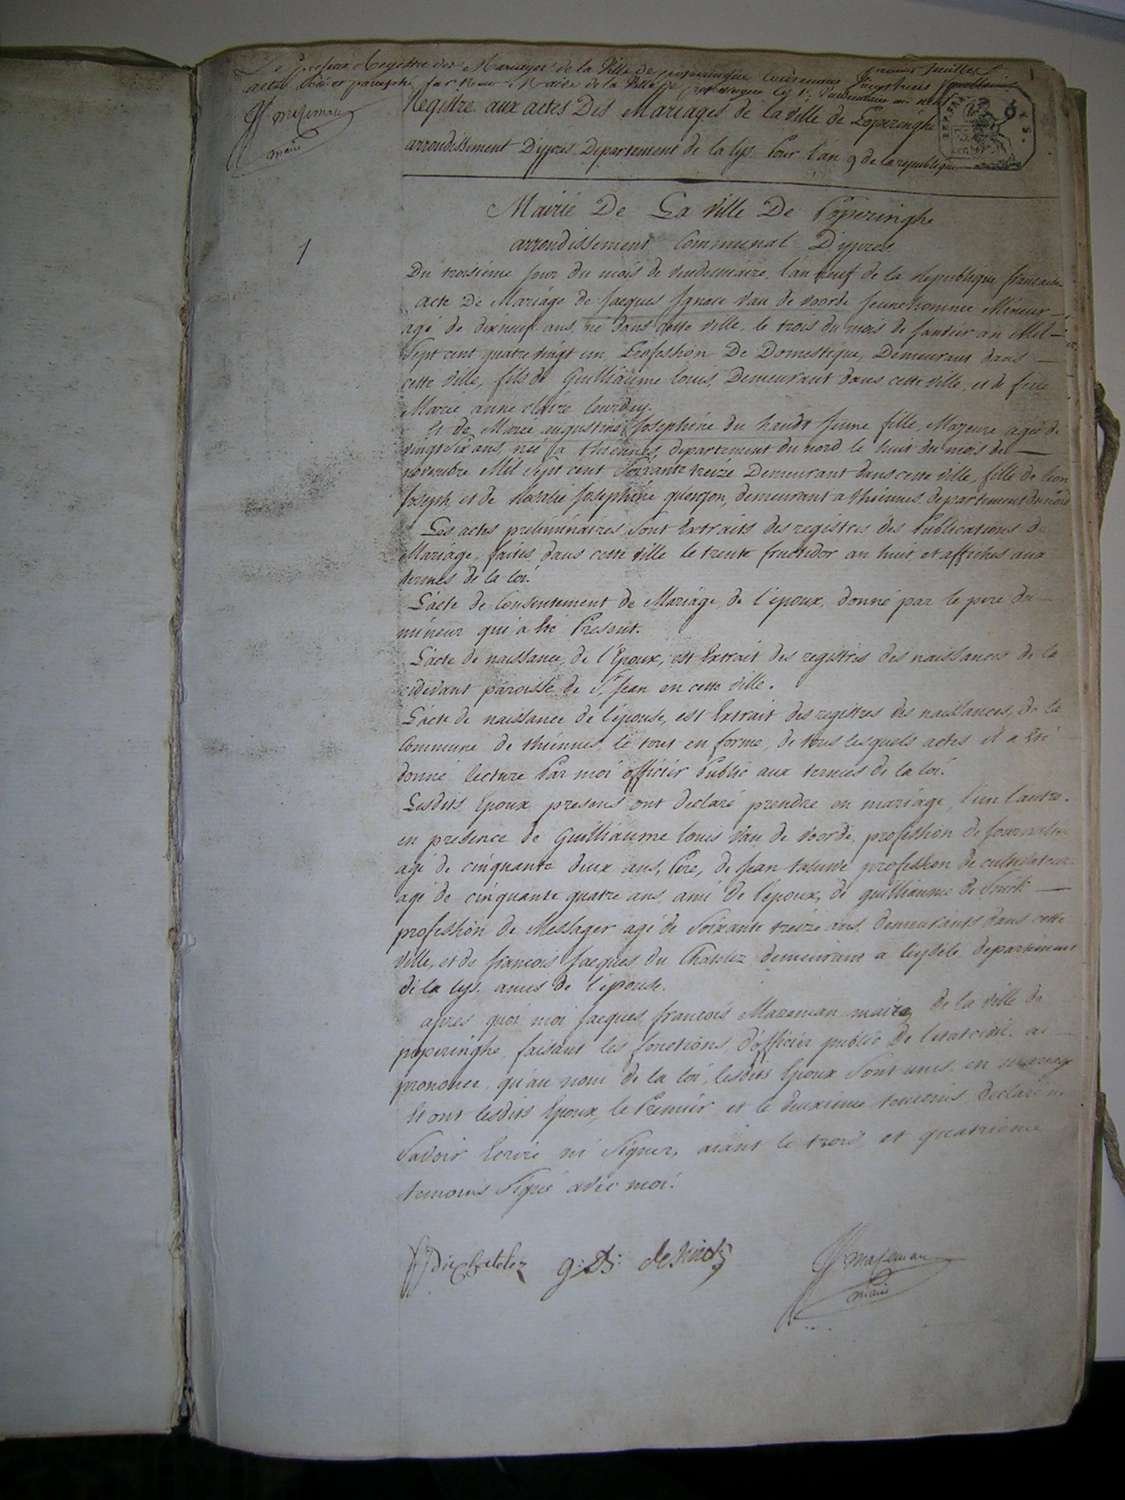 Le présent Registre des Mariages de la Ville de poperinghe
J f mazeman
maire
Registre aux actes Des Mariages de la ville de Poperinghe
arrondissement D'ypres Departement de la lys Pour l'an 9 de la republique
1
Mairie De La ville De Poperinghe
arrondissement Communal D'ypres
Du troisieme jour du mois de vendemiaire, l'an neuf de la republique francaise
acte De Mariage de Jacques Ignace Van de voorde jeune homme Mineur
agé de dixneuf ans, né dans cette ville, le trois du mois de janvier an Mil
Sept cent quatre vingt un, Profession De Domestique, Demeurant dans
cette ville, fils de Guilliaume louis, Demeurant dans cette ville, et de feue
Marie anne claire
Et de Marie augustine Josephine du jeune fille, Majeure agée de
vingt six ans, née a thiennes, departement du nord le huit du mois de
novembre Mil Sept cent Soixante treize Demeurant dans cette ville, fille de
Joseph et de Josephine demeurant a thiennes departement du nord
Les actes preliminaires sont Extraits des registres des Publications de
Mariage, faites dans cette ville le trente fructidor an huit et affichés aux
termes de la loi.
L'acte de Consentement de Mariage, de l'epoux, donné par le pere du
mineur qui a été Present.
L'acte de naissance, de l'Epoux, est Extrait des registres des naissances de la
cidevant paroisse de St. Jean en cette ville.
L'acte de naissance de l'epouse, est Extrait des registres des naissances, de la
Commune de thiennes, le tout en forme, de tous lesquels actes il a été
donné lecture Par moi officier Public aux termes de la loi.
Lesdits Epoux presens ont declaré prendre en mariage, l'un l'autre.
en presence de Guilliaume louis Van de Voorde, profession de journalier
agé de cinquante deux ans, Pere, de Jean profession de cultivateur
agé de cinquante quatre ans, ami de l'epoux, de guilliaume de
profession de Messager agé de Soixante treize ans demeurants dans cette
ville, et de francois Jacques du Chatelez demeurant a leysele departement
de la lys. amis de l'epouse.
apres quoi moi Jacques francois Mazeman maire de la ville de
poperinghe faisant les fonctions d'officier public de l'etat civil. ai
prononcé, qu'au nom de la loi, lesdits Epoux Sont unis en mariage
Et ont lesdits Epoux, le Premier et le deuxieme temoins declaré ne
Savoir Ecrire ni Signer, aiant le trois et quatrieme
temoins Signé avec moi.
J f mazeman
maire